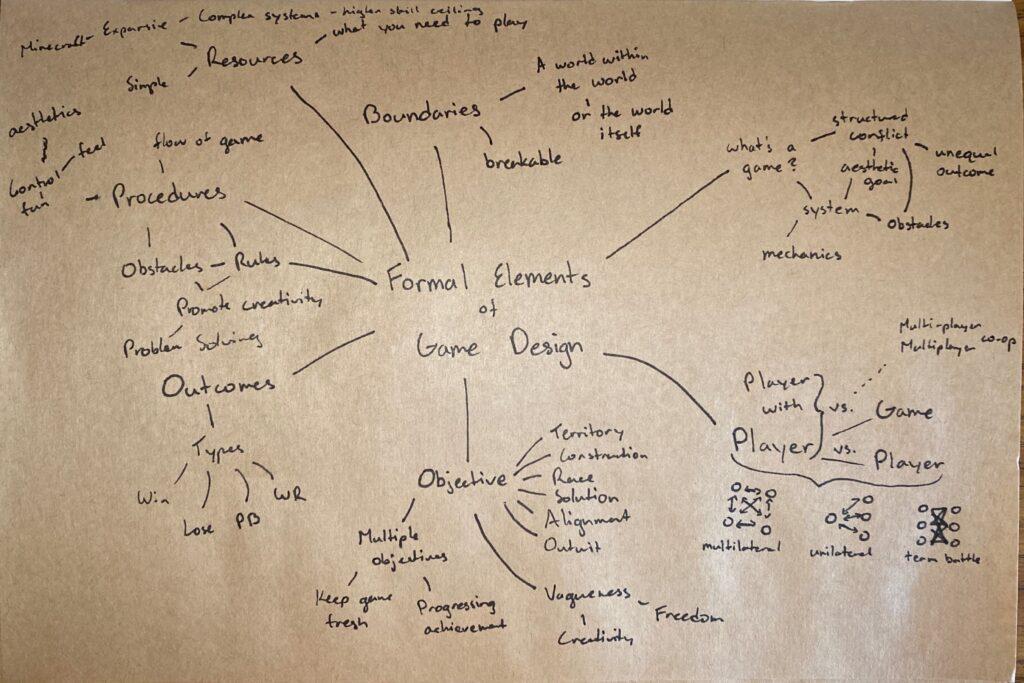 Minecraft - Expansive - Complex systems - higher skill ceilings
what you need to play
Resources
Simple
Boundaries
A world within
the world
or the world
itself
breakable
what's a
game?
structured
conflict
aesthetic
goal
unequal
outcome
system
Obstacles
mechanics
aesthetics
feel
Control
fun
flow of game
Procedures
Obstacles - Rules
Promote creativity
Problem Solving
Formal Elements
of
Game Design
Outcomes
Types
Win
Lose
PB
WR
Objective
Territory
Construction
Race
Solution
Alignment
Outwit
Multiple
objectives
Keep game
fresh
Progressing
achievement
Vagueness
Freedom
Creativity
Multi-player
Multiplayer co-op
Player
with
vs.
Game
Player
vs.
Player
multilateral
unilateral
team battle